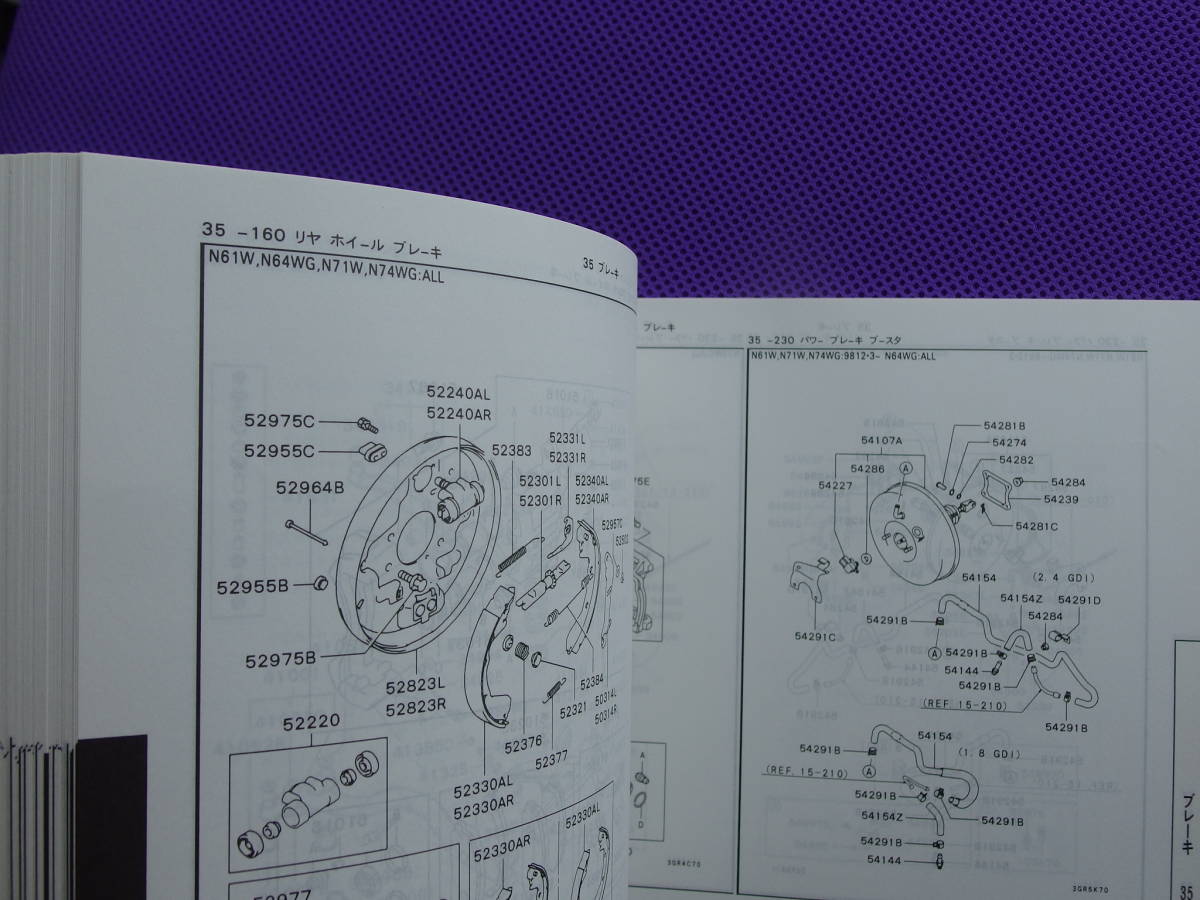 35 -160 リヤ ホイール ブレーキ
35 ブレーキ
N61W,N64WG,N71W,N74WG:ALL
52240AL
52240AR
52975C
52955C
52964B
52383
52331L
52331R
52301L
52301R
52340AL
52340AR
52957C
52955B
52975B
52823L
52823R
52384
50314L
50314R
52321
52376
52377
52220
52330AL
52330AR
52330AR
52330AL
ブレーキ
A
D
3GR4C70
35 -230 パワー ブレーキ ブースタ
N61W,N71W,N74WG:9812·3- N64WG:ALL
54281B
54107A
54274
54286
A
54282
54227
54284
54239
54281C
A
54154
(2.4 GDI)
54154Z
54291D
54284
54291B
54291C
A
54291B
54144
54291B
(REF. 15-210)
54291B
54154
54291B
(1.8 GDI)
(REF. 15-210)
A
54291B
54154Z
54291B
54291B
54144
3GR5K70
ブレーキ
35